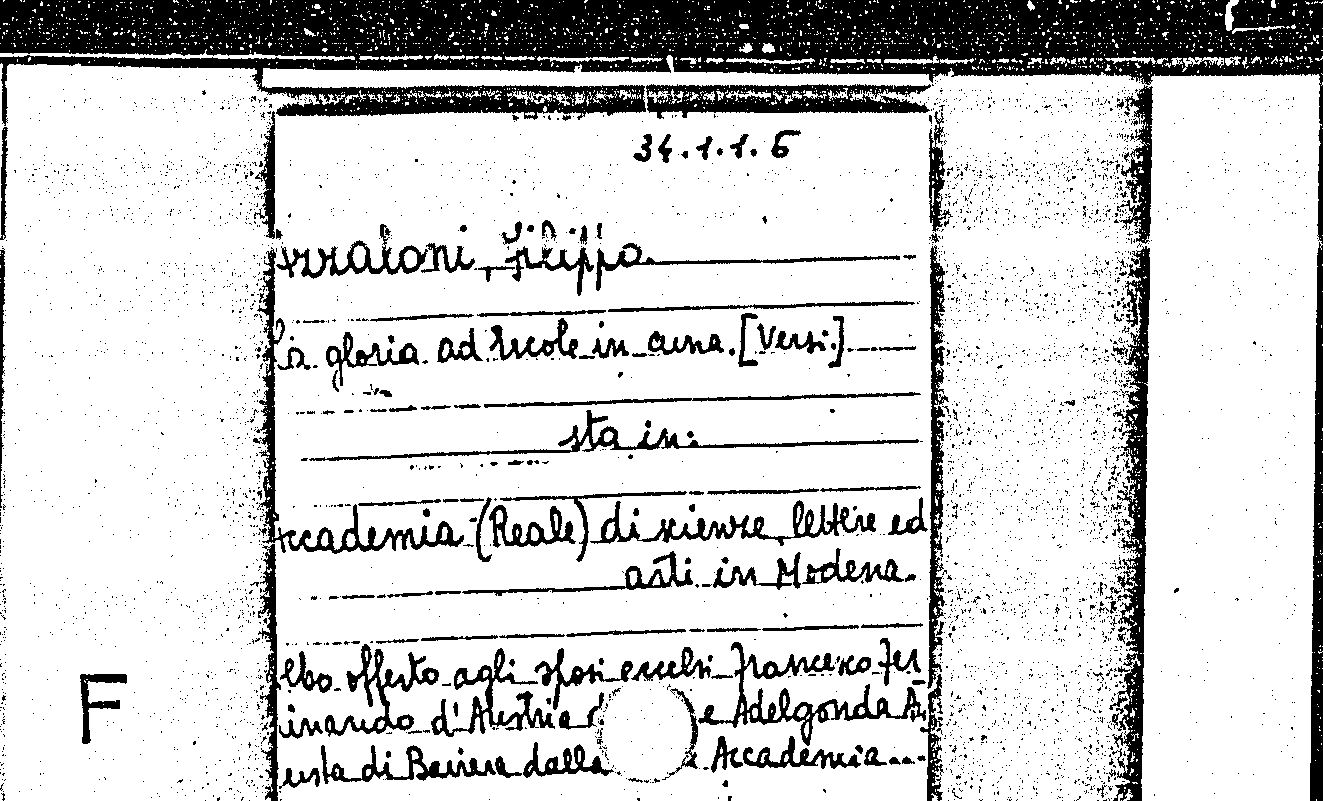 34.1.1.5
Filippo.
La gloria ad Ercole in cuna. [Versi.]
sta in:
Accademia (Reale) di scienze, lettere ed
arti in Modena.
offerto agli sposi eccelsi Francesco Fer
inando d'Austria e Adelgonda Au
usta di Baviera dalla Accademia...
F